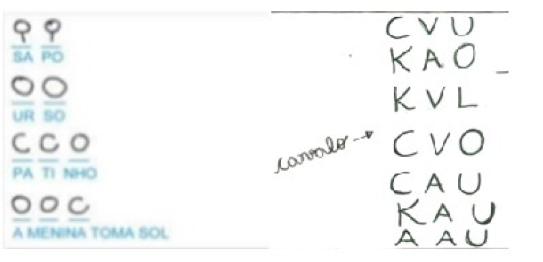 SA PO
UR SO
C C O
PA TI NHO
O O C
A MENINA TOMA SOL
CVU
KAO
KVL
cavalo → CVO
CAU
KAU
AAU